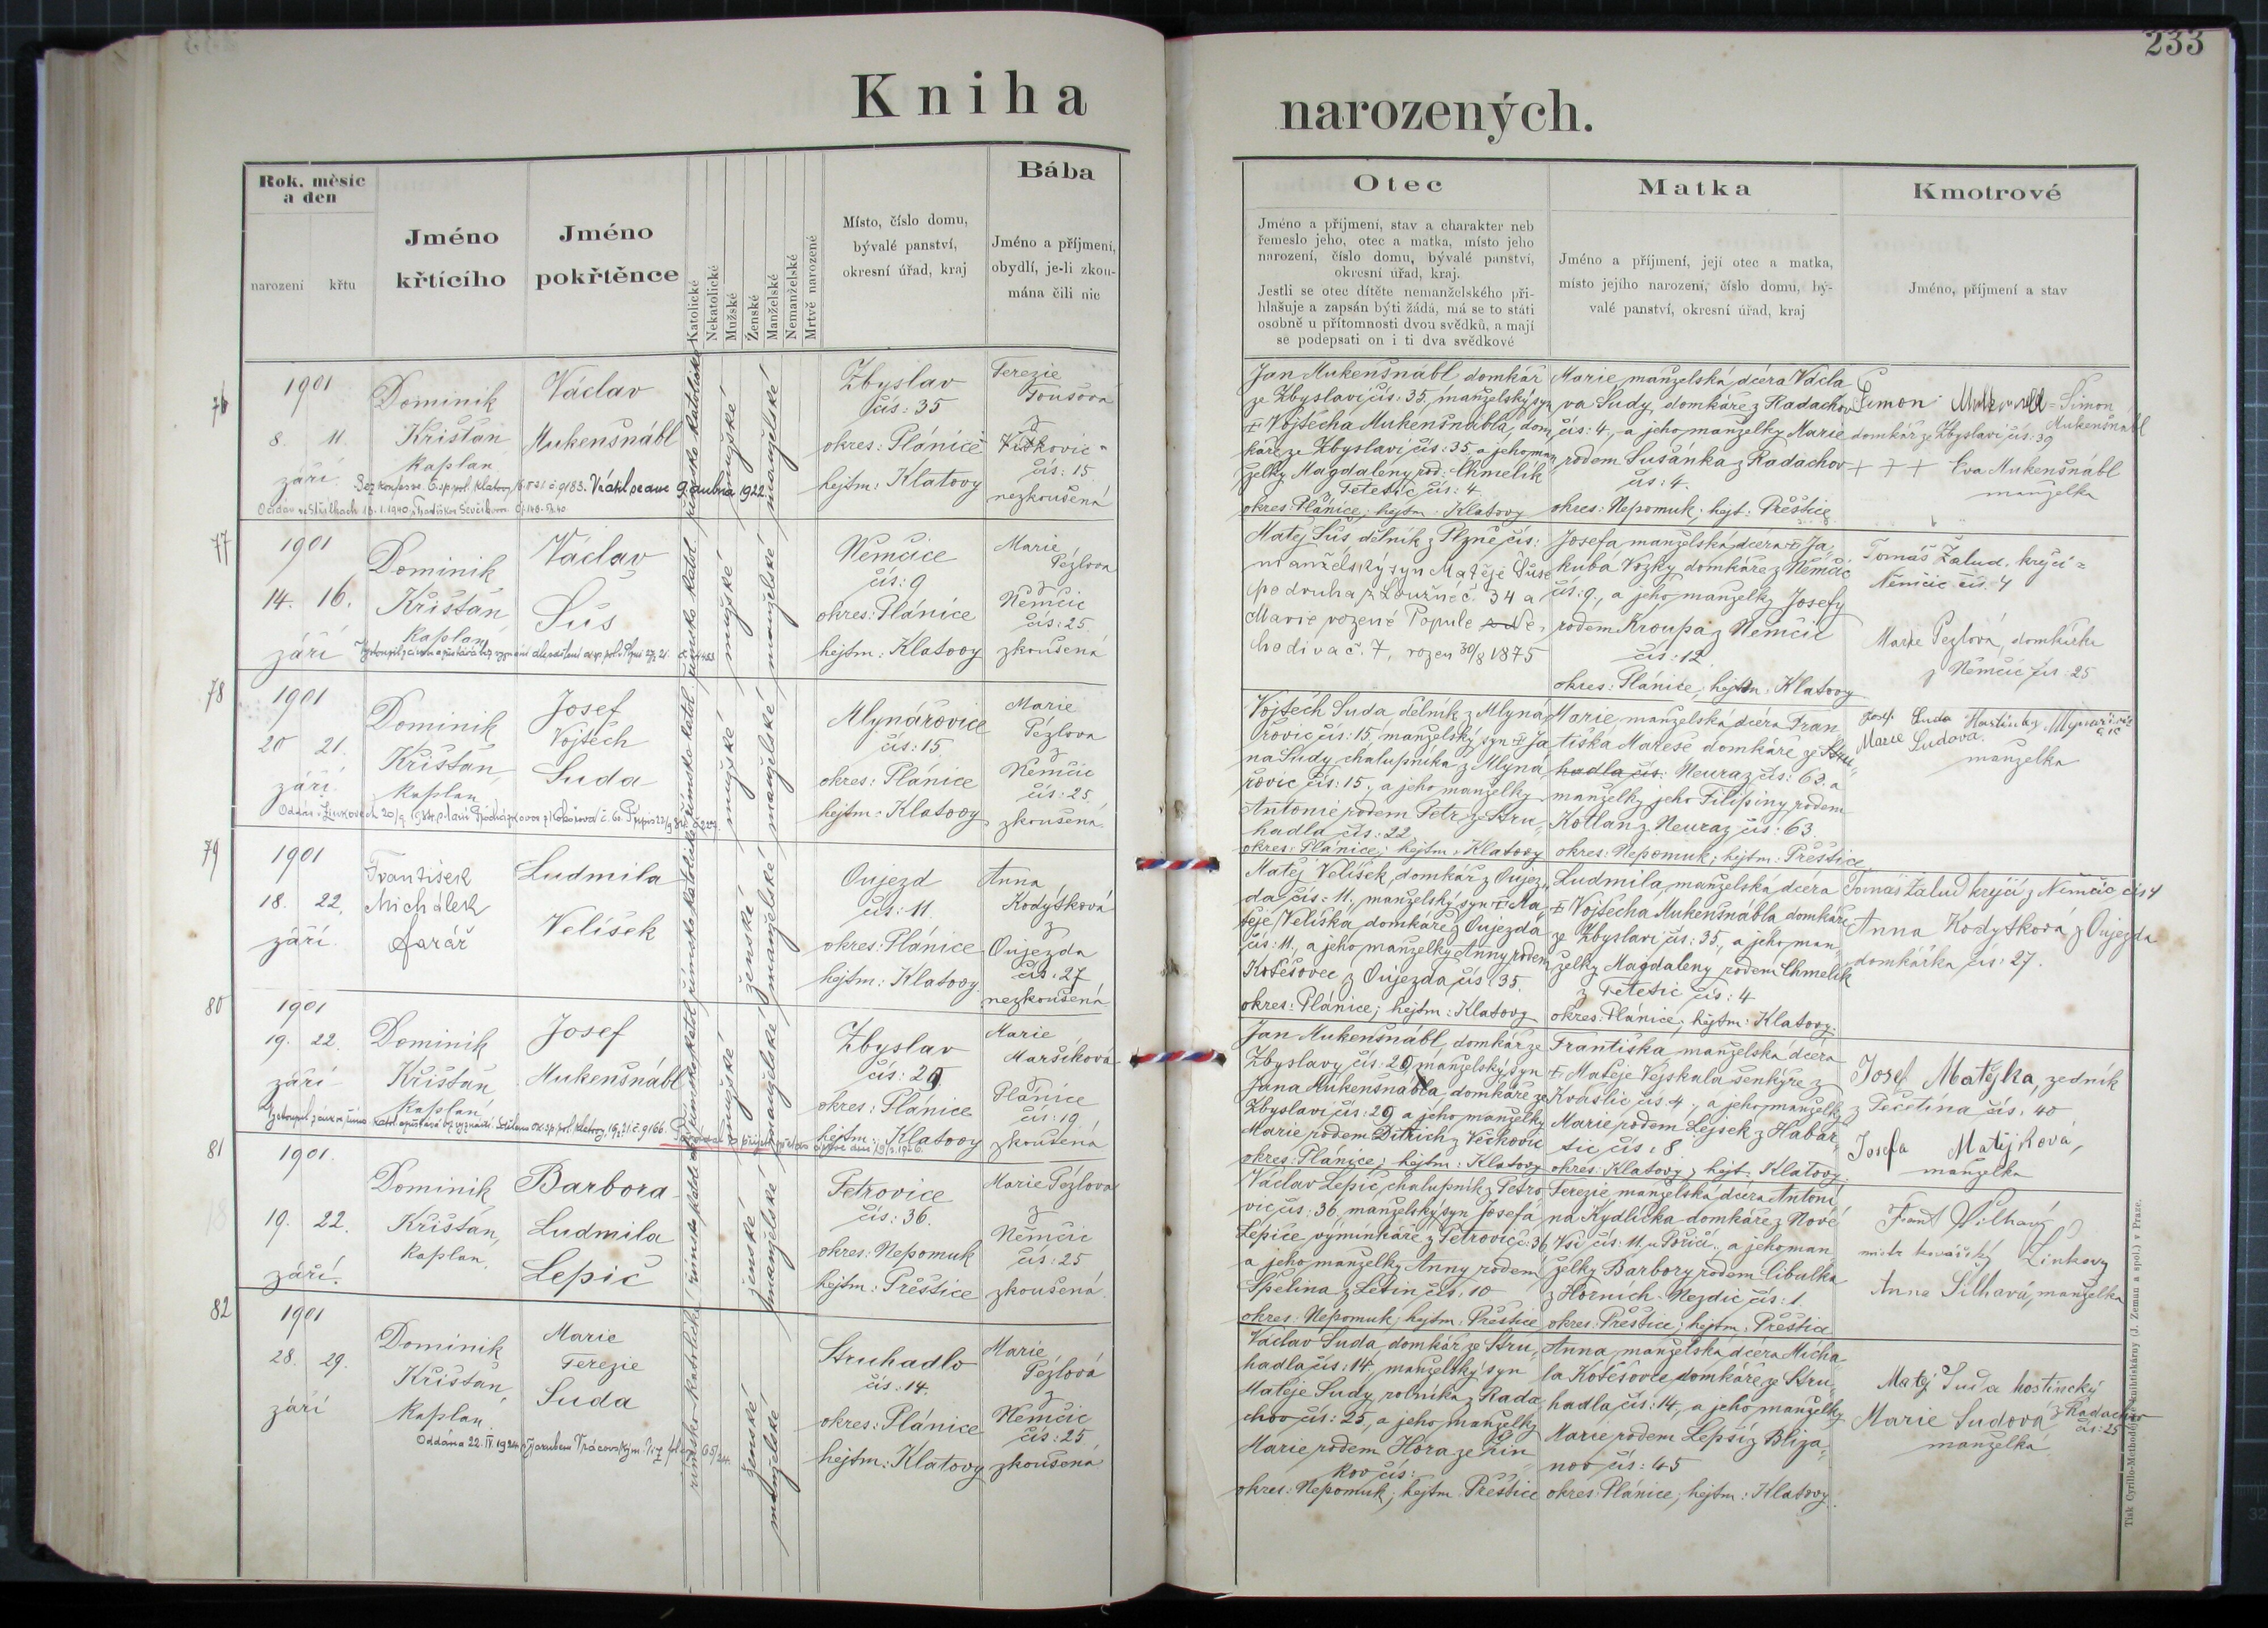 233
Kniha
narozených.
Rok, měsíc
a den
narození
křtu
Jméno
křtícího
Jméno
pokřtěnce
Katolické
Nekatolické
Mužské
Ženské
Manželské
Nemanželské
Mrtvě narozené
Místo, číslo domu,
bývalé panství,
okresní úřad, kraj
Bába
Jméno a příjmení,
obydlí, je-li zkou-
mána čili nic
Otec
Jméno a příjmení, stav a charakter neb
řemeslo jeho, otec a matka, místo jeho
narození, číslo domu, bývalé panství,
okresní úřad, kraj.
Jestli se otec dítěte nemanželského při-
hlašuje a zapsán býti žádá, má se to státi
osobně u přítomnosti dvou svědků, a mají
se podepsati on i ti dva svědkové
Matka
Jméno a příjmení, její otec a matka,
místo jejího narození, číslo domu, bý-
valé panství, okresní úřad, kraj
Kmotrové
Jméno, příjmení a stav
76
1901
8. 11.
září.
Dominik
Křišťan
kaplan
Václav
Mukenšnábl
římsko katolické
mužské
manželské
Zbyslav
čís: 35
okres: Plánice
hejtm: Klatovy
Terezie
Toušová
z
čís: 15
nezkoušená
Jan Mukenšnábl domkář
ze Zbyslavi čís: 35, manželský syn
Vojtěcha Mukenšnábla, dom
káře ze Zbyslavi čís: 35, a jeho man
želky Magdaleny rod. Chmelík
z Tetětic čís: 4
okres: Plánice; hejtm: Klatovy
Marie, manželská dcera Václa
va Sudy, domkáře z Radachov
čís: 4., a jeho manželky Marie
rodem Sušánka z Radachov
čís: 4.
okres: Nepomuk; hejt: Přeštice
Šimon
Mukenšnábl
domkář ze Zbyslavi čís: 39
+ + + Eva Mukenšnábl
manželka
77
1901
14. 16.
září
Dominik
Křišťan,
kaplan
Václav
Šůs
mužské
manželské
Němčice
čís: 9
okres: Plánice
hejtm: Klatovy
Marie
Pézlova
z
Němčic
čís: 25
zkoušená
Matěj Šůs dělník z Plzně čís:
manželský syn Matěje Šůse
podruha z Loužné č. 34 a
Marie rozené Popule
chodiva č. 7, rozen 30/8 1875
Josefa manželská dcera + Ja-
kuba Vozky domkáře z Němčic
čís: 9., a jeho manželky Josefy
rodem Kroupa z Němčic
čís: 12.
okres: Plánice, hejtm: Klatovy
Tomáš Žalud, krejčí
Němčic čís. 4
Marie Pezlová, domkářka
z Němčic čís: 25
78
1901
20 21.
září.
Dominik
Křišťan,
kaplan
Josef
Vojtěch
Suda
mužské
manželské
Mlynářovice
čís: 15
okres: Plánice
hejtm: Klatovy
Marie
Pézlova
z
Němčic
čís: 25.
zkoušená.
Vojtěch Suda, dělník z Mlyna
řovic čís: 15, manželský syn + Ja
na Sudy chalupníka z Mlyná
řovic čís: 15., a jeho manželky
Antonie rodem Petr ze Stru-
hadla čís: 22
okres: Plánice; hejtm: Klatovy
Marie manželská dcera Fran
tiška Mareše domkáře ze Stru-
hadla čís: Neuraz čís: 63 a
manželky jeho Filipiny rodem
Kotlan z Neuraz čís: 63.
okres: Nepomuk; hejtm: Přeštice
Josef Suda
Marie Sudova.
manželka
79
1901
18. 22.
září.
František
Michálek
farář
Ludmila
Velíšek
ženské
manželské
Oujezd
čís: 11.
okres: Plánice
hejtm: Klatovy
Anna
Kodýtková
z
Oujezda
čís: 27
nezkoušená
Matěj Velíšek, domkář z Oujez-
da čís: 11., manželský syn + Ma-
těje Velíška, domkáře z Oujezda
čís: 11., a jeho manželky Anny rodem
Košešovec z Oujezda čís: 35.
okres: Plánice; hejtm: Klatovy
Ludmila, manželská dcera
+ Vojtěcha Mukenšnábla domkáře
ze Zbyslavi čís: 35., a jeho man-
želky Magdaleny rodem Chmelík
z Tetětic čís: 4
okres: Plánice; hejtm: Klatovy.
Tomáš Žalud krejčí z Němčic čís 4
Anna Kodýtková z Oujezda
domkářka čís: 27.
80
1901
19. 22.
září
Dominik
Křišťan,
kaplan
Josef
Mukenšnábl
mužské
manželské
Zbyslav
čís: 29
okres: Plánice
hejtm: Klatovy
Marie
Maršíková
z
Plánice
čís: 19
zkoušená
Jan Mukenšnábl, domkář ze
Zbyslavy čís: 29, manželský syn
Jana Mukenšnábla domkáře ze
Zbyslavi čís: 29 a jeho manželky
Marie rodem Ditrich z Věckovic
okres: Plánice; hejtm: Klatovy
Františka manželská dcera
+ Matěje Vejskala šenkýře z
Kvaslic čís: 4., a jeho manželky
Marie rodem Lejsek z Habar-
tic čís: 8
okres: Klatovy; hejt: Klatovy
Josef Matějka, zedník
z Pečetína čís. 40
Josefa Matějková,
manželka
81
1901.
19. 22.
září.
Dominik
Křišťan,
kaplan.
Barbora
Ludmila
Lepič
ženské
manželské
Petrovice
čís: 36.
okres: Nepomuk
hejtm: Přeštice
Marie Pézlova
z
Němčic
čís: 25
zkoušená.
Václav Lepič, chalupník z Petro
vic čís: 36, manželský syn Josefa
Lepiče výminkáře z Petrovic č: 36
a jeho manželky Anny rodem
Špelina z Letin čís: 10
okres: Nepomuk; hejtm: Přeštice
Terezie manželská dcera Antoní
na Kydlíčka domkáře z Nové
Vsi čís: 11. u Poříčí., a jeho man
želky Barbory rodem Cibulka
z Horních-Nezdic čís: 1.
okres: Přeštice; hejtm: Přeštice
Frant Šilhavý
mistr kovářský Žinkovy
Anna Šilhavá, manželka
82
1901
28. 29.
září
Dominik
Křišťan,
kaplan.
Marie
Terezie
Suda
římsko-katolické
ženské
manželské
Struhadlo
čís: 14.
okres: Plánice
hejtm: Klatovy
Marie
Pézlová
z
Němčic
čís: 25
zkoušená
Václav Suda, domkář ze Stru-
hadla čís: 14, manželský syn
Matěje Sudy, rolníka z Rada
chov čís: 25, a jeho manželky
Marie rodem Hora ze Žin-
kov čís:
okres: Nepomuk; hejtm Přeštice
Anna, manželská dcera Micha
la Košešovce domkáře ze Stru-
hadla čís: 14, a jeho manželky
Marie rodem Lepší z Bliža-
nov čís: 45
okres: Plánice; hejtm: Klatovy.
Matěj Suda hostinský
z Radachov
čís: 25
Marie Sudová
manželka
Tisk Cyrillo-Methodějské knihtiskárny (J. Zeman a spol.) v Praze.